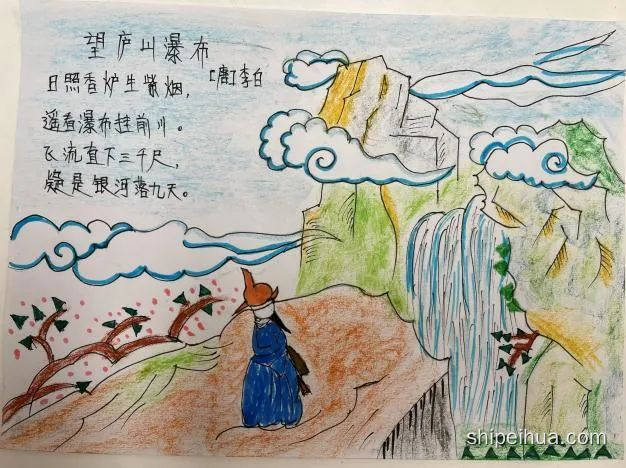 望庐山瀑布
[唐]李白
日照香炉生紫烟，
遥看瀑布挂前川。
飞流直下三千尺，
疑是银河落九天。
shipeihua.com